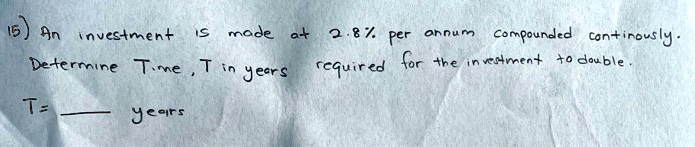 15) An investment is made at 2.8% per annum compounded continously.
Determine Time, T in years required for the investment to double.
T= ____ years